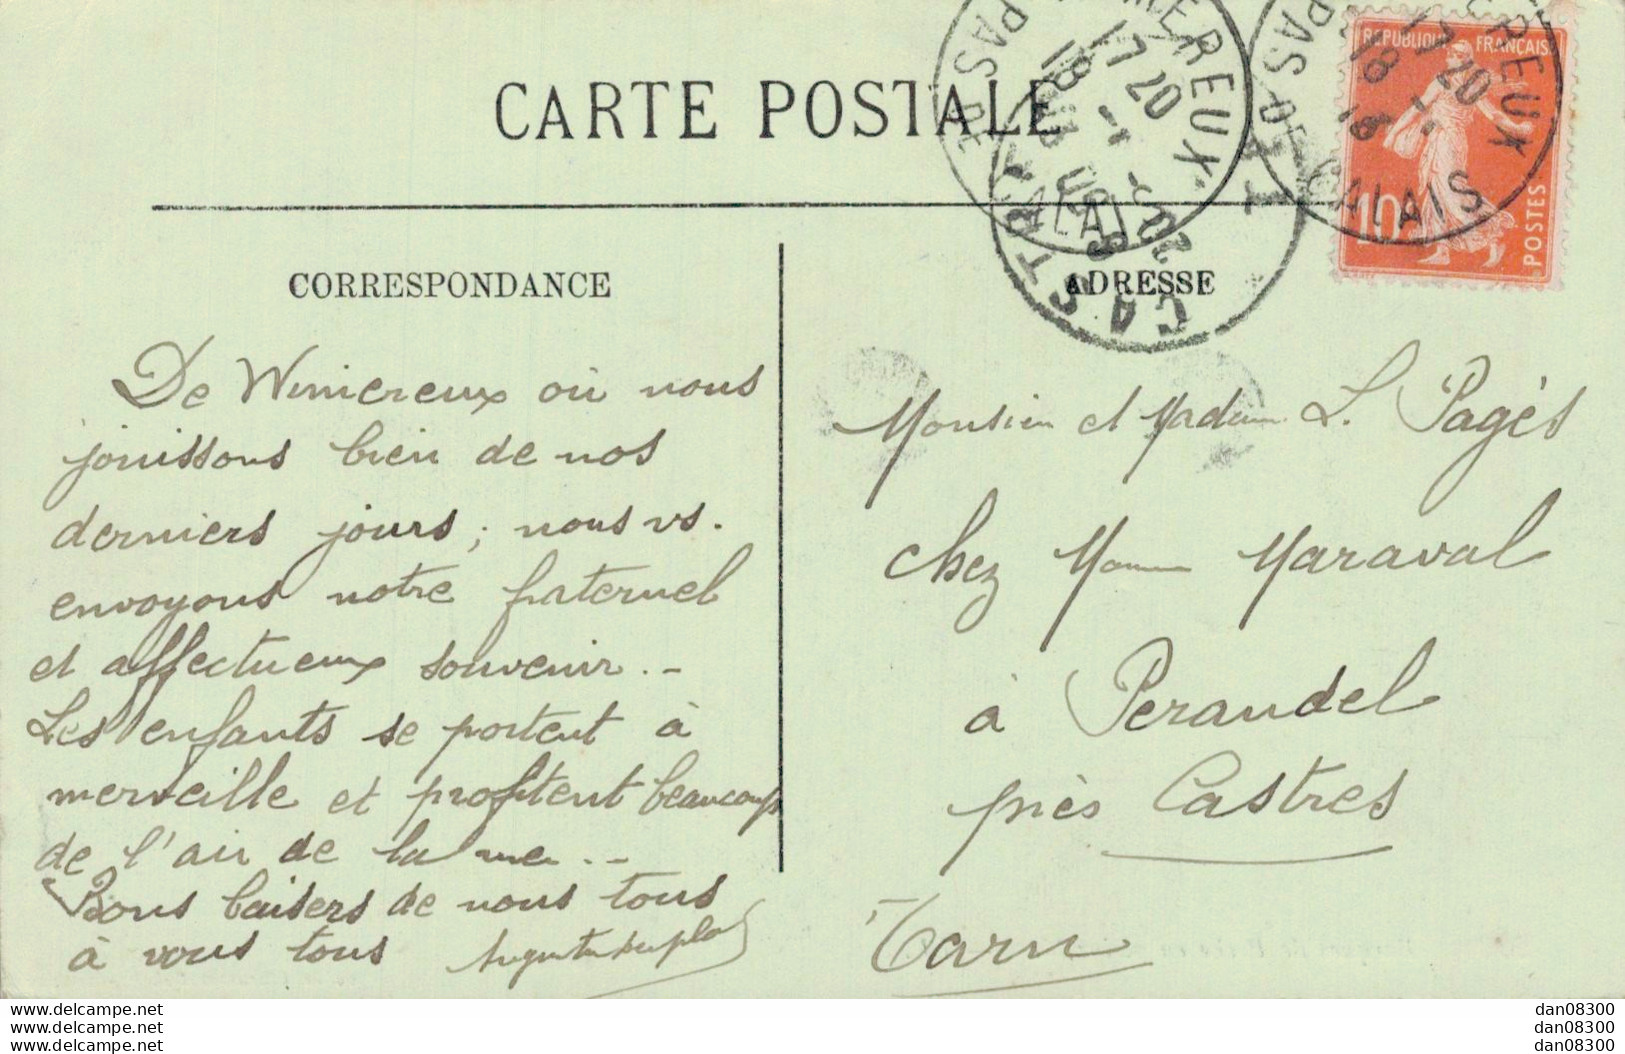 CARTE POSTALE
WIMEREUX
17 20
18 - 1
13
PAS DE CALAIS
WIMEREUX
17 20
18 - 1
13
PAS DE CALAIS
CASTRES
REPUBLIQUE FRANÇAISE
10
POSTES
CORRESPONDANCE
De Wimereux où nous
jouissons bien de nos
derniers jours ; nous vs.
envoyons notre fraternel
et affectueux souvenir. -
Les enfants se portent à
merveille et profitent beaucoup
de l'air de la mer. --
Bons baisers de nous tous
à vous tous
ADRESSE
Monsieur et Madame L. Pagès
chez Madame Maraval
à Peraudel
près Castres
Tarn
www.delcampe.net
www.delcampe.net
www.delcampe.net
dan08300
dan08300
dan08300